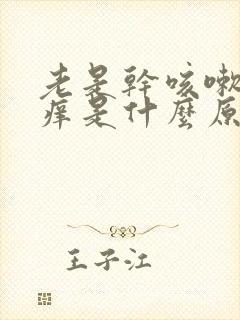 老是幹咳嗽
痒是什麼原
王子江